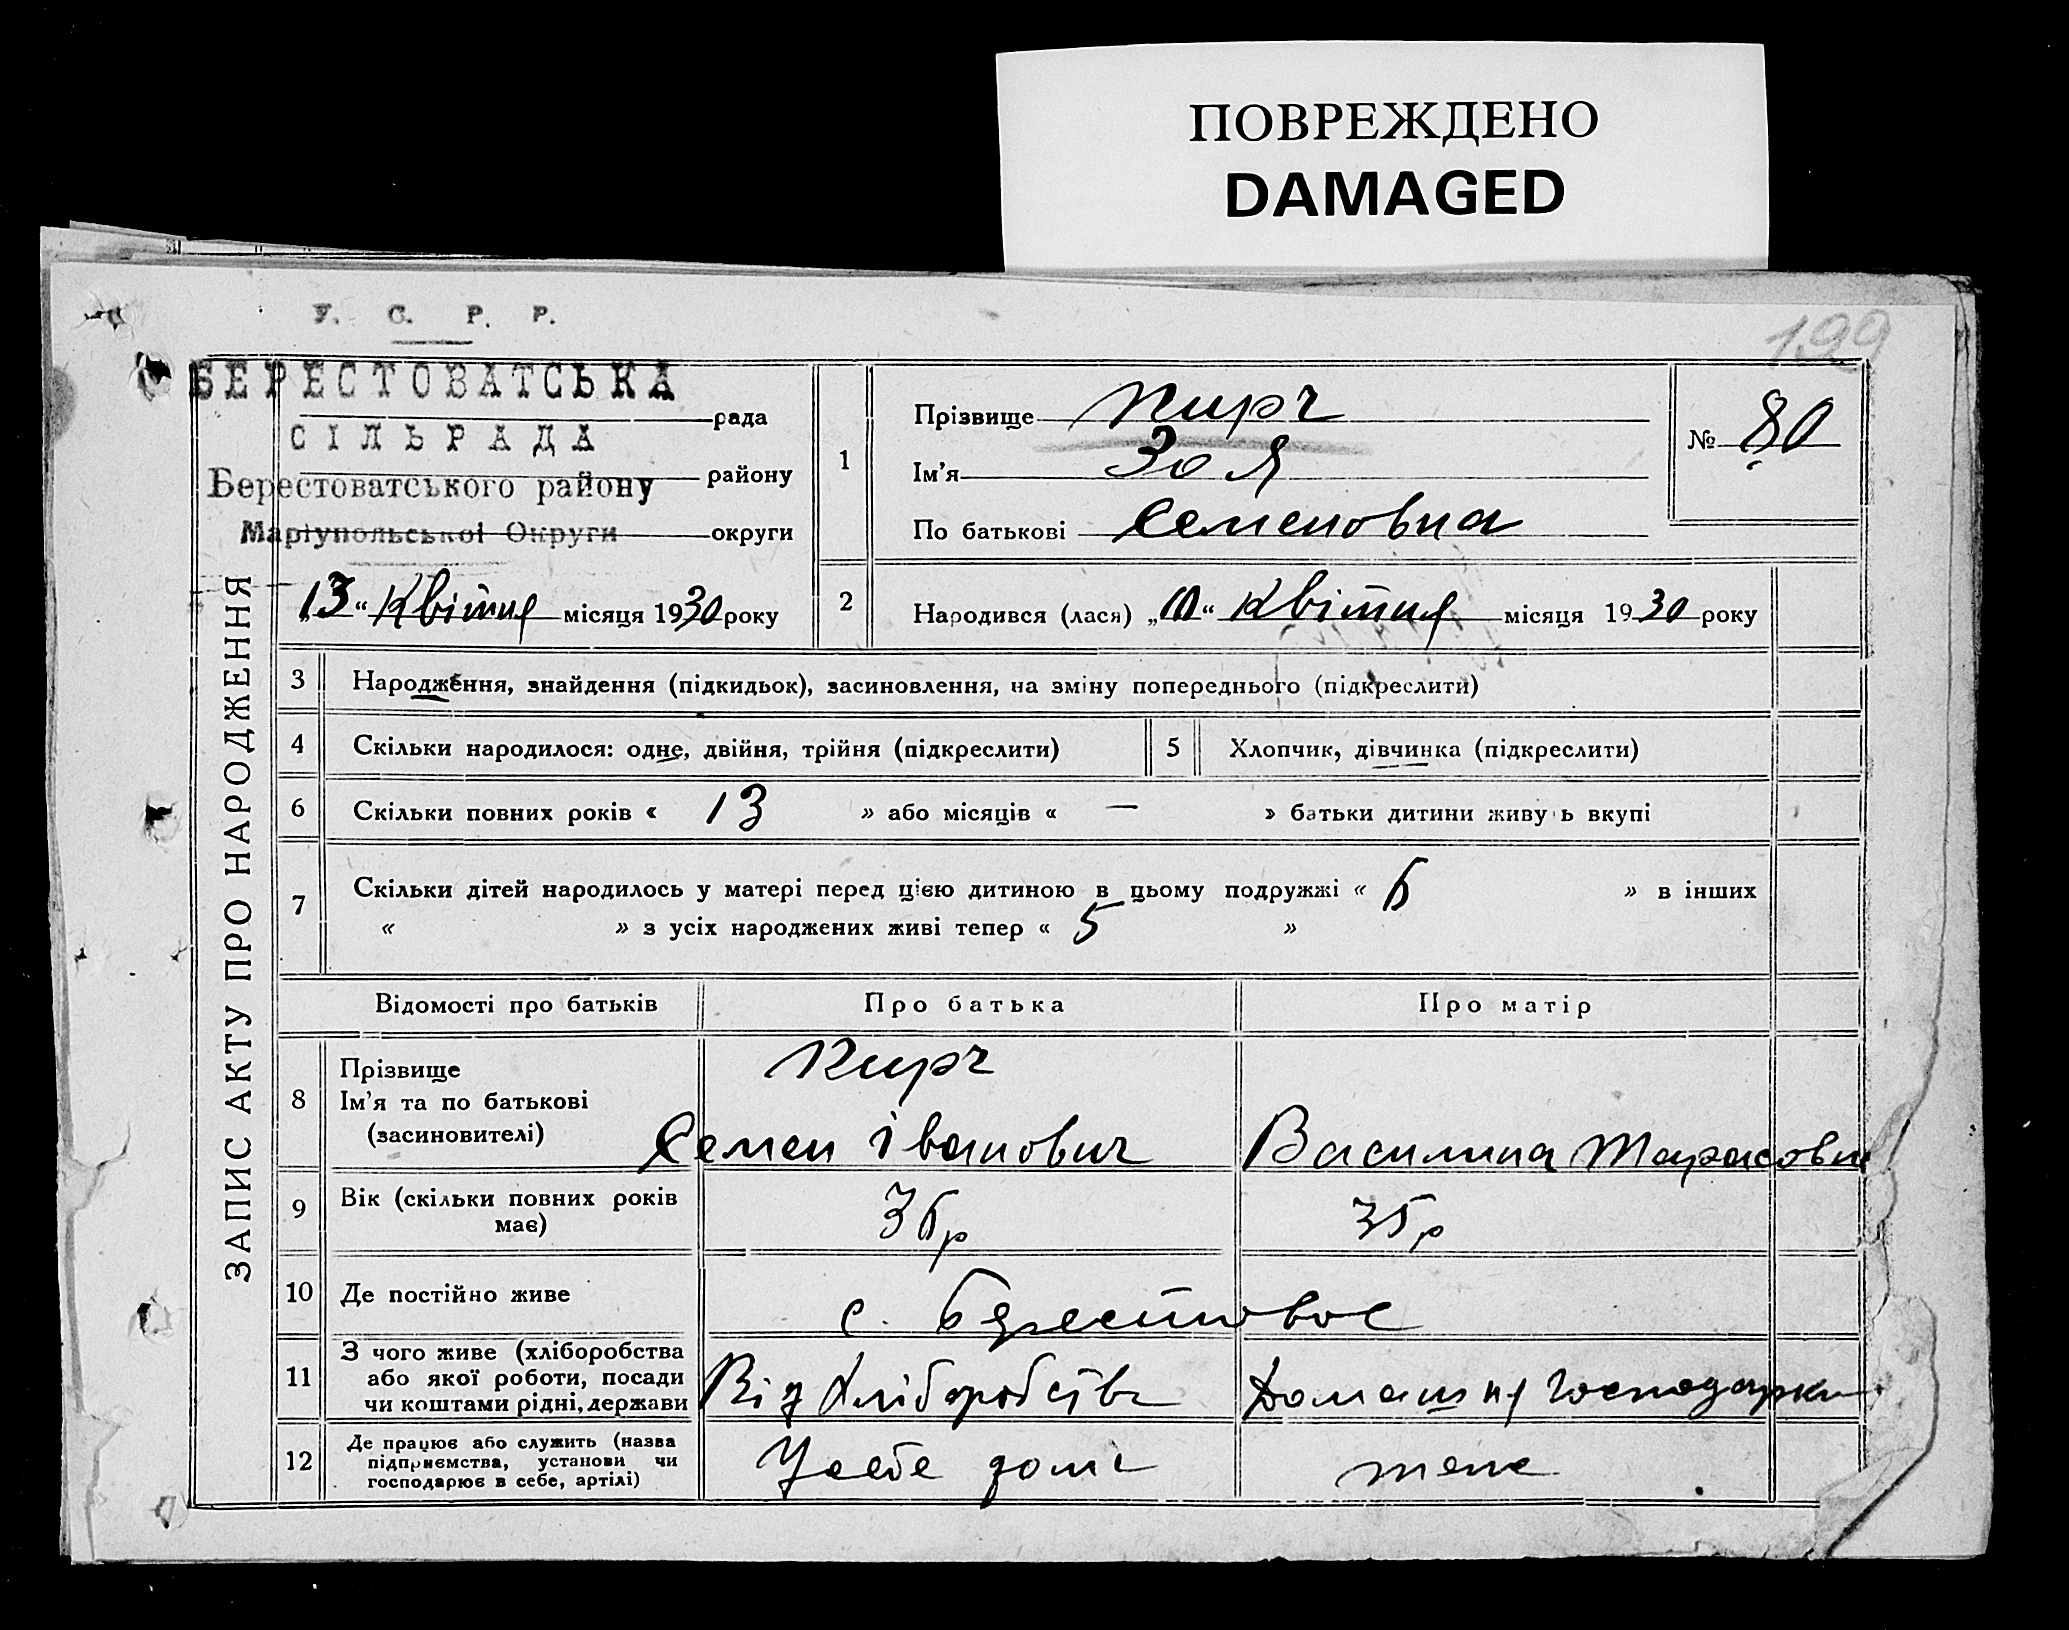 ПОВРЕЖДЕНО
DAMAGED
199
У. С. Р. Р.
БЕРЕСТОВАТСЬКА
рада
СІЛЬРАДА
району
Берестоватського району
Маріупольської Округи
округи
„13“ Квітня місяця 1930 року
1
Прізвище Кирч
Ім’я Зоя
По батькові Семеновна
№ 80
2
Народився (лася) „10“ Квітня місяця 1930 року
ЗАПИС АКТУ ПРО НАРОДЖЕННЯ
3 Народження, знайдення (підкидьок), засиновлення, на зміну попереднього (підкреслити)
4 Скільки народилося: одне, двійня, трійня (підкреслити)
5 Хлопчик, дівчинка (підкреслити)
6 Скільки повних років « 13 » або місяців « — » батьки дитини живуть вкупі
7 Скільки дітей народилось у матері перед цією дитиною в цьому подружжі « 6 » в інших
« » з усіх народжених живі тепер « 5 »
Відомості про батьків Про батька Про матір
8 Прізвище
Ім’я та по батькові
(засиновителі)
Кирч
Семен Іванович
Василина Тарасовна
9 Вік (скільки повних років
має)
36р
35р
10 Де постійно живе
с. Берестовое
11 З чого живе (хліборобства
або якої роботи, посади
чи коштами рідні, держави
Від Хліборобства
Домашня господарка
12 Де працює або служить (назва
підприємства, установи чи
господарює в себе, артілі)
У себе дома
теж